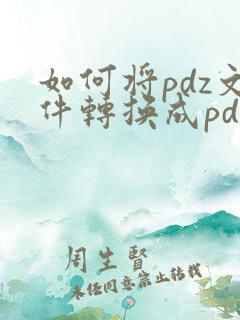 如何将pdz文
件轉换成pd
周生賢
未经同意禁止转载